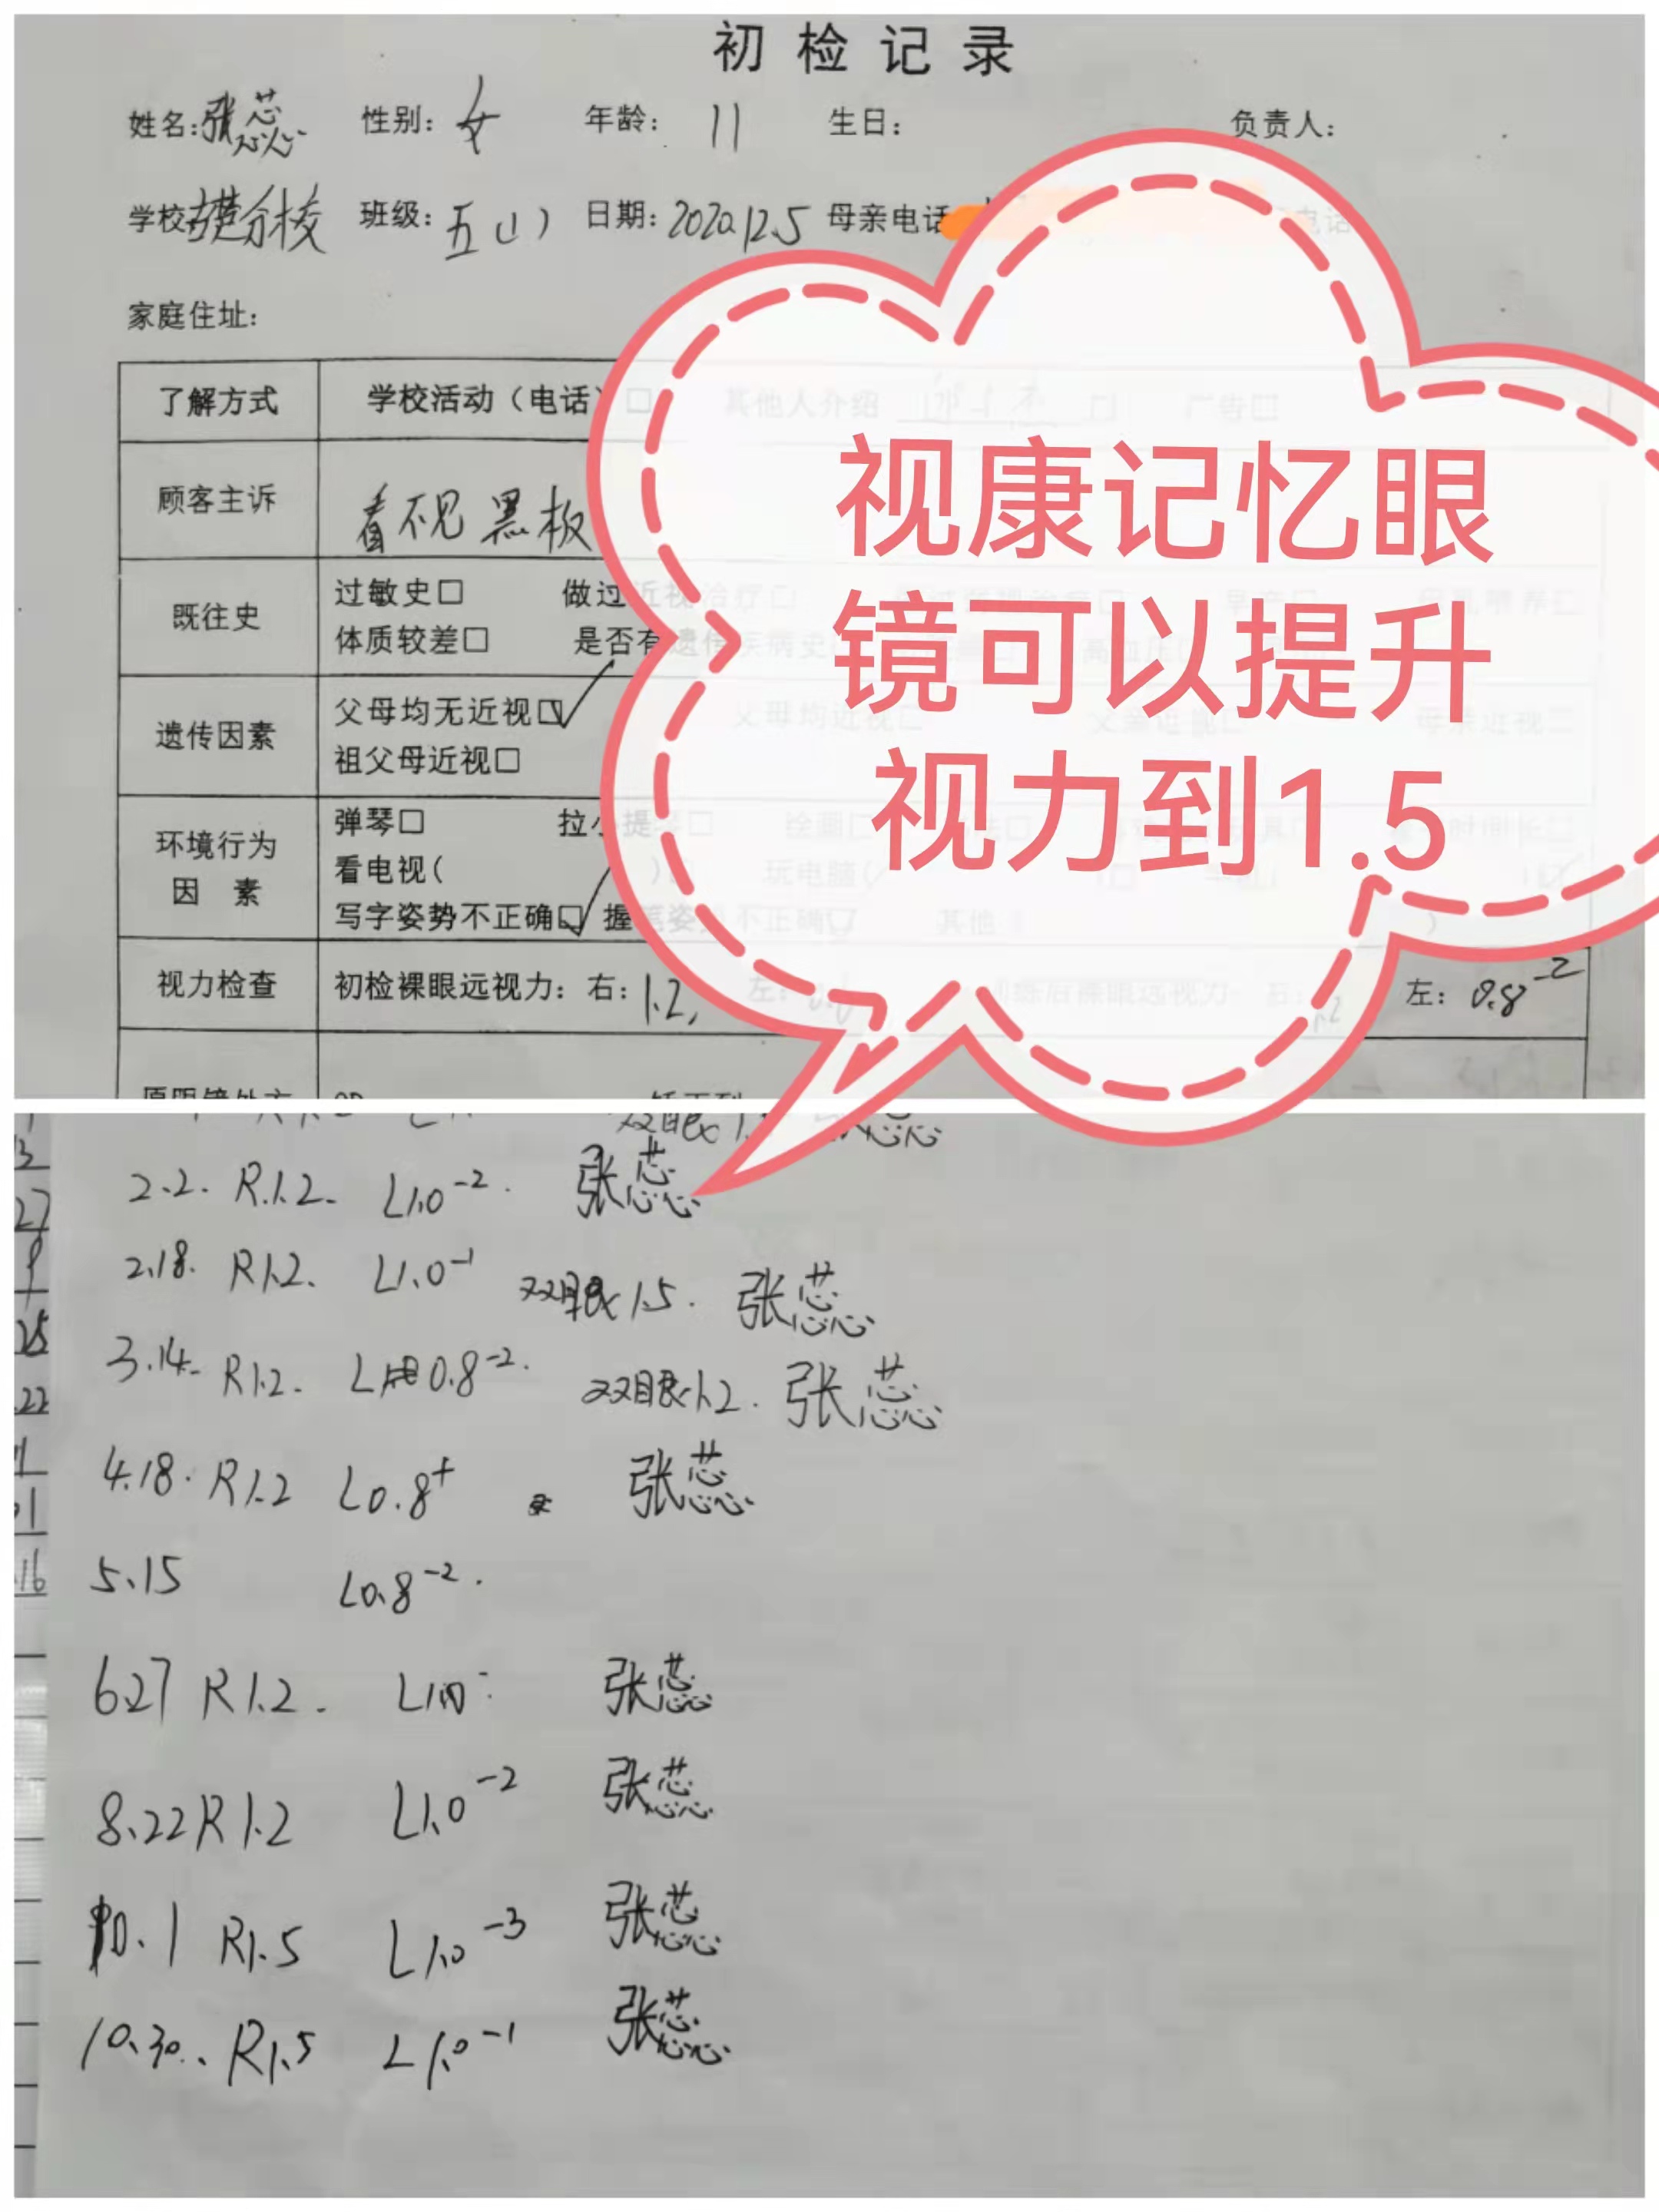 初检记录
姓名:张蕊 性别:女 年龄:11 生日: 负责人:
学校 分校 班级:五(1) 日期:2020.12.5 母亲电话 电话
家庭住址:
了解方式 学校活动(电话)□ 其他人介绍 □ 广告□
顾客主诉 看不见黑板
既往史 过敏史□ 做过近视治疗□
体质较差□ 是否有遗传疾病史 高血压□
遗传因素 父母均无近视□✓ 父母均近视□ 父亲近视□ 母亲近视□
祖父母近视□
环境行为因素 弹琴□ 拉小提琴□ 绘画□
看电视( )□ 玩电脑(
写字姿势不正确□✓ 握笔姿势不正确□ 其他( )
视力检查 初检裸眼远视力:右:1.2, 左:0.6 训练后裸眼远视力 右:1.2 左:0.8⁻²
视康记忆眼
镜可以提升
视力到1.5
2.2. R.1.2. L1.0⁻². 张蕊
2.18. R1.2. L1.0⁻¹ 双眼1.5. 张蕊
3.14. R1.2. L 0.8⁻². 双眼1.2. 张蕊
4.18. R1.2 L0.8⁺ 张蕊
5.15 L0.8⁻².
6.27 R1.2. L1.0⁻ 张蕊
8.22 R1.2 L1.0⁻² 张蕊
10.1 R1.5 L1.0⁻³ 张蕊
10.30.. R1.5 L1.0⁻¹ 张蕊